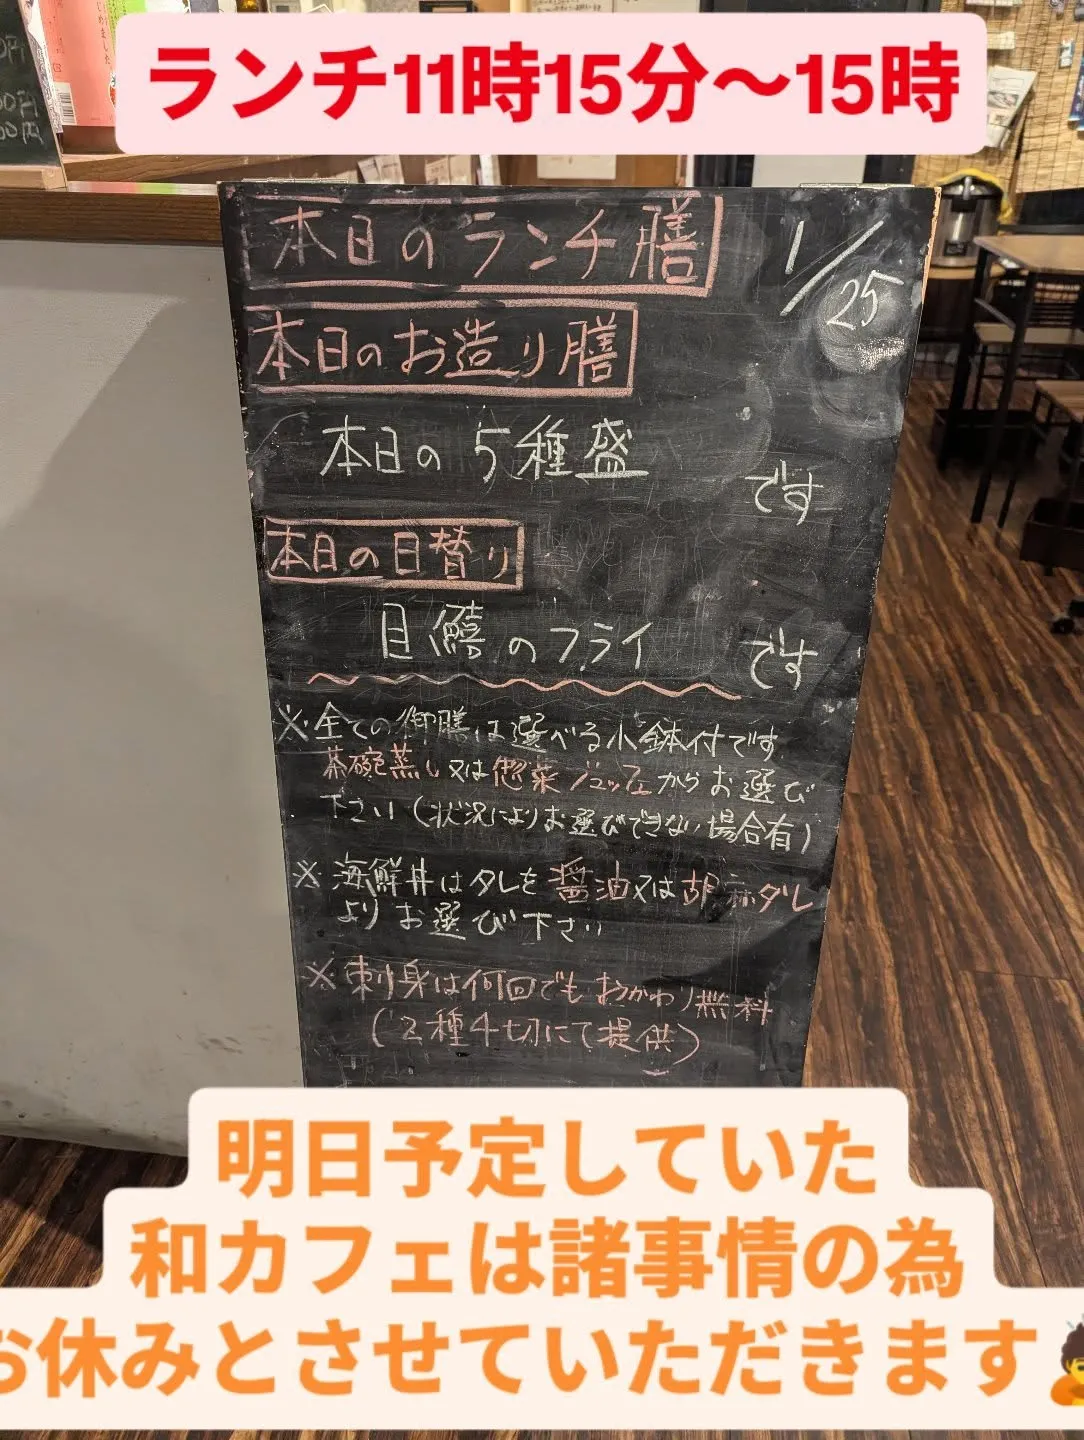 ランチ11時15分〜15時
本日のランチ膳
1/25
本日のお造り膳
本日の5種盛
です
本日の日替り
目鱚のフライ
です
※全ての御膳は選べる小鉢付です
茶碗蒸し又は惣菜ブュッフェからお選び
下さい(状況によりお選びできない場合有)
※海鮮丼はタレを醤油又は胡麻ダレ
よりお選び下さい
※刺身は何回でもおかわり無料
(2種4切にて提供)
明日予定していた
和カフェは諸事情の為
お休みとさせていただきます🙇